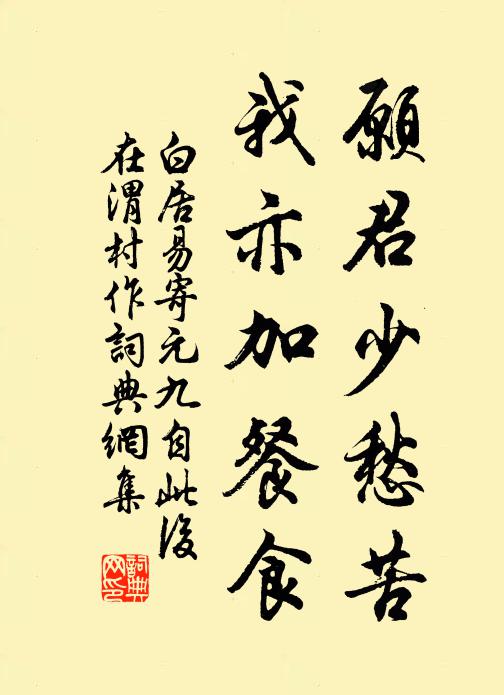 願君少愁苦
我亦加餐食
白居易寄元九自此後
在渭村作詞典網集
詞典
网印